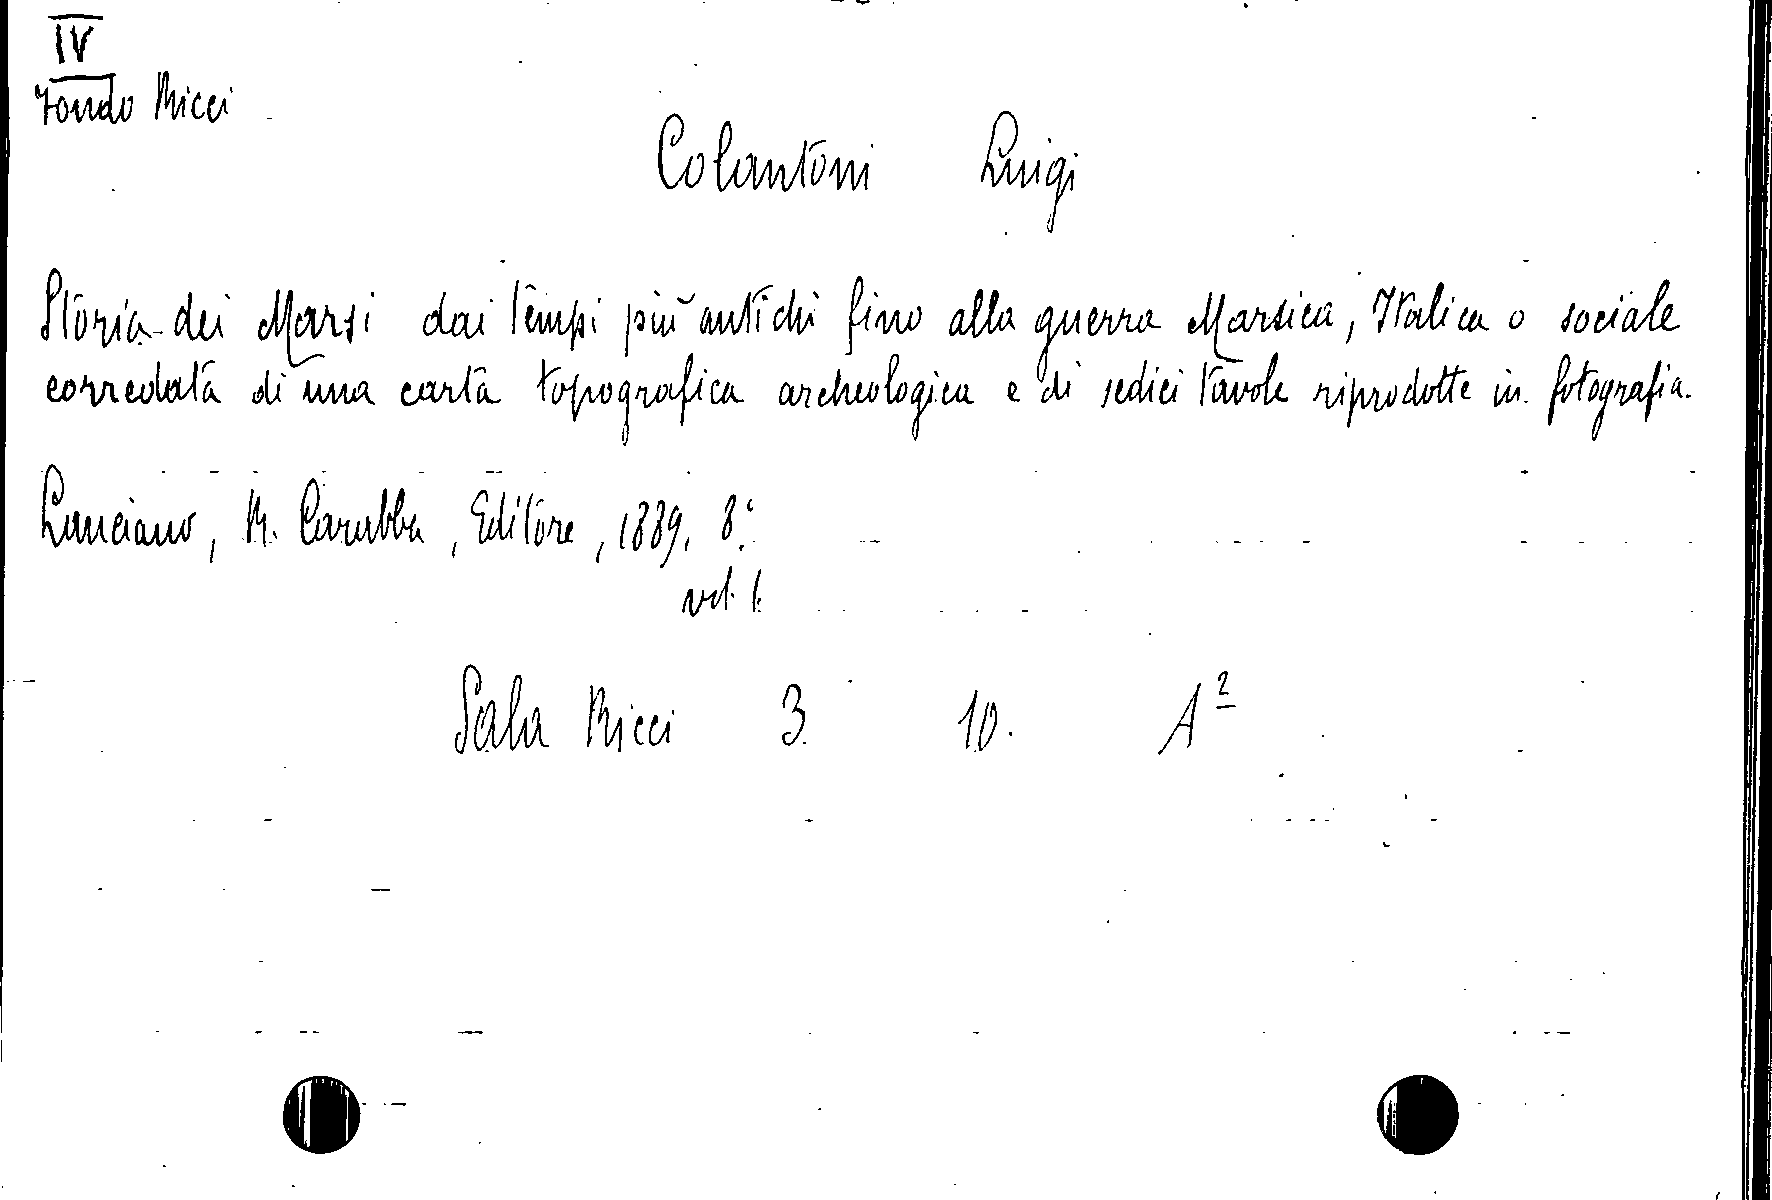 IV
Fondo Ricci
Colantoni Luigi
Storia dei Marsi dai tempi più antichi fino alla guerra Marsica, Italica o sociale
corredata di una carta topografica archeologica e di sedici tavole riprodotte in fotografia.
Lanciano, R. Carabba, Editore, 1889, 8°.
vol. 1.
Sala Ricci 3 10. A²